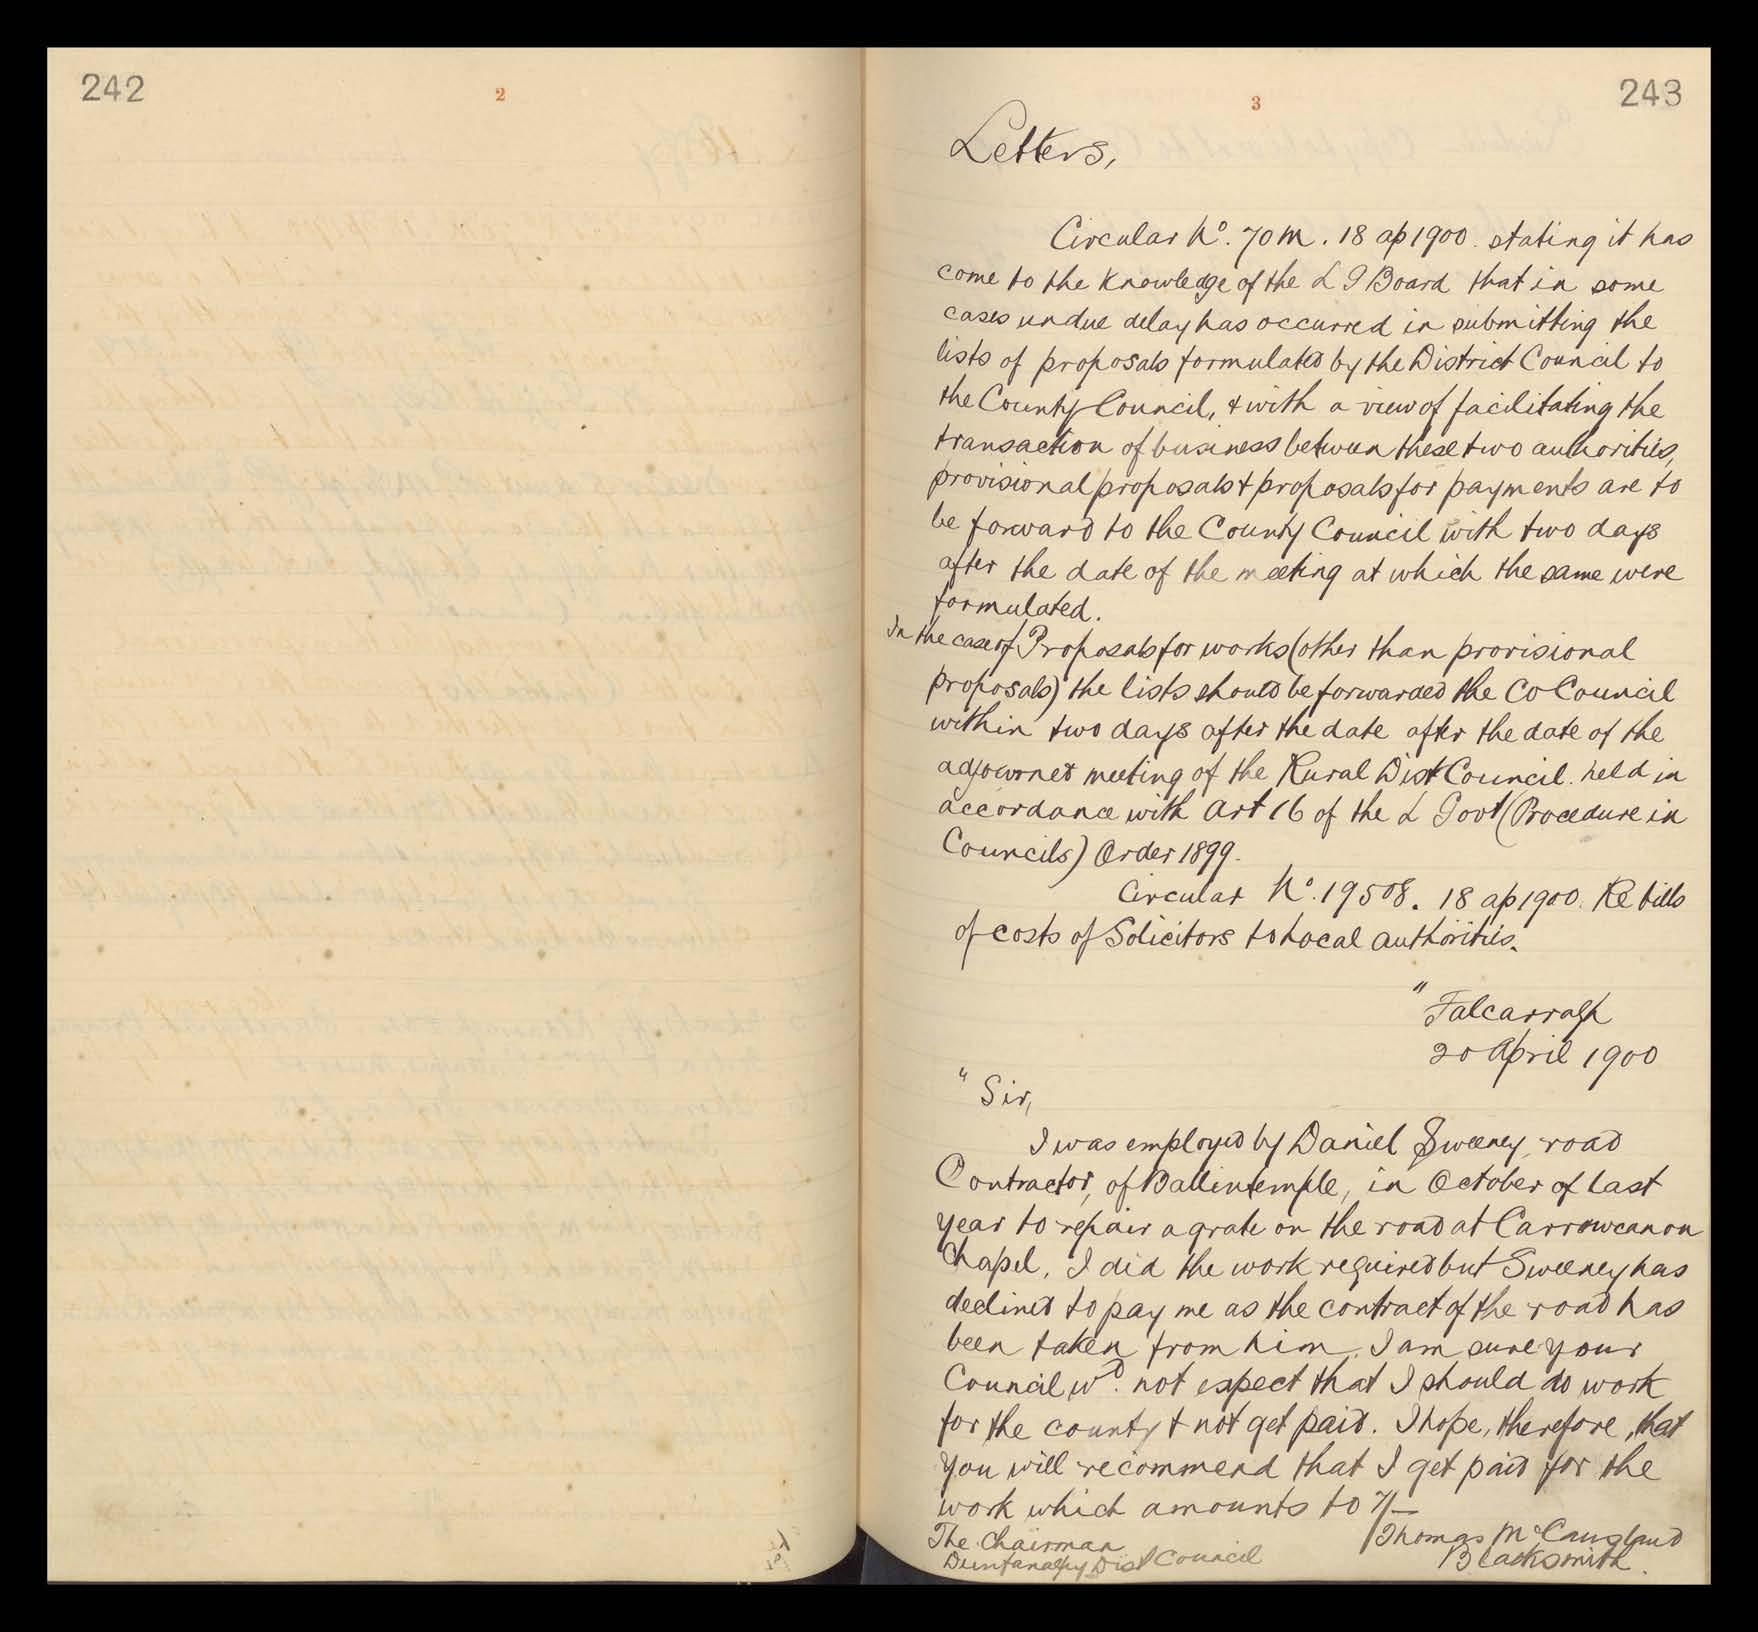 242
2
243
3
Letters,
Circular No. 70M. 18 ap 1900. stating it has
come to the knowledge of the L G Board that in some
cases undue delay has occurred in submitting the
lists of proposals formulated by the District Council to
the County Council, & with a view of facilitating the
transaction of business between these two authorities,
provisional proposals & proposals for payments are to
be forward to the County Council with two days
after the date of the meeting at which the same were
formulated.
In the case of Proposals for works (other than provisional
proposals) the lists should be forwarded the Co Council
within two days after the date after the date of the
adjourned meeting of the Rural Dist Council. held in
accordance with Art 16 of the L Govt (Procedure in
Councils) Order 1899.
Circular No. 19508. 18 ap 1900. Re bills
of costs of Solicitors to Local authorities.
"Falcarragh
20 April 1900
"Sir,
I was employed by Daniel Sweeney, road
Contractor, of Ballintemple, in October of last
year to repair a grate on the road at Carrowcanon
Chapel, I did the work required but Sweeney has
declined to pay me as the contract of the road has
been taken from him. I am sure your
Council wD. not expect that I should do work
for the county & not get paid. I hope, therefore, that
you will recommend that I get paid for the
work which amounts to 7/-
The Chairman
Thomas McCausland
Dunfanaghy Dist Council
Blacksmith.